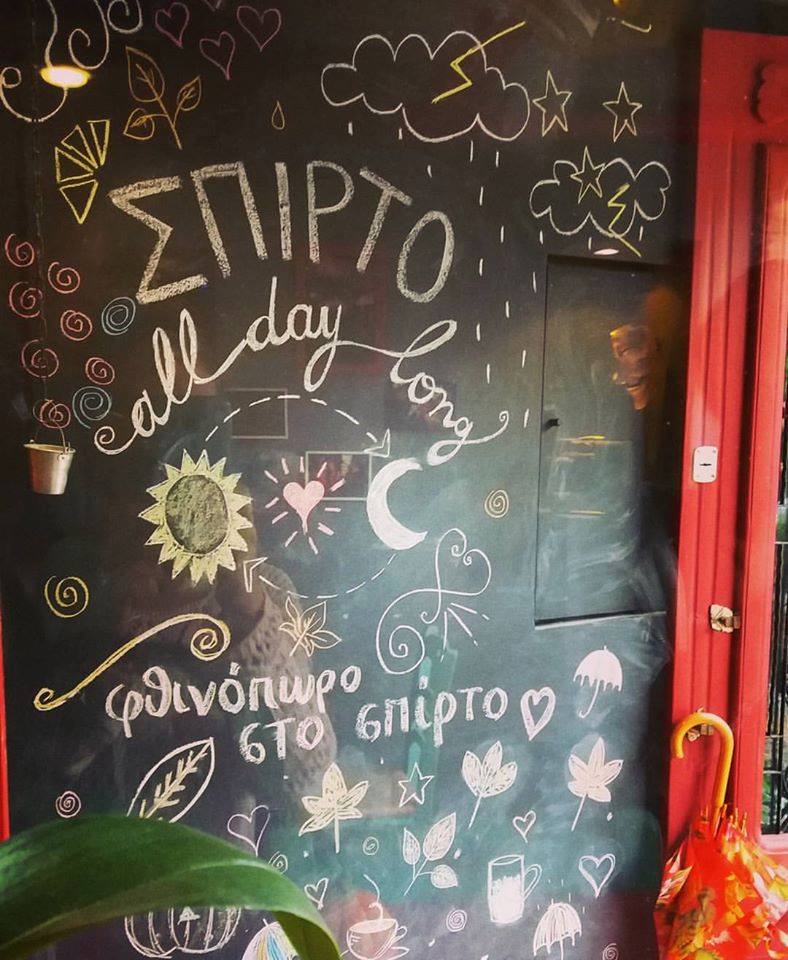 ΣΠΙΡΤΟ
all day long
φθινόπωρο
στο σπίρτο